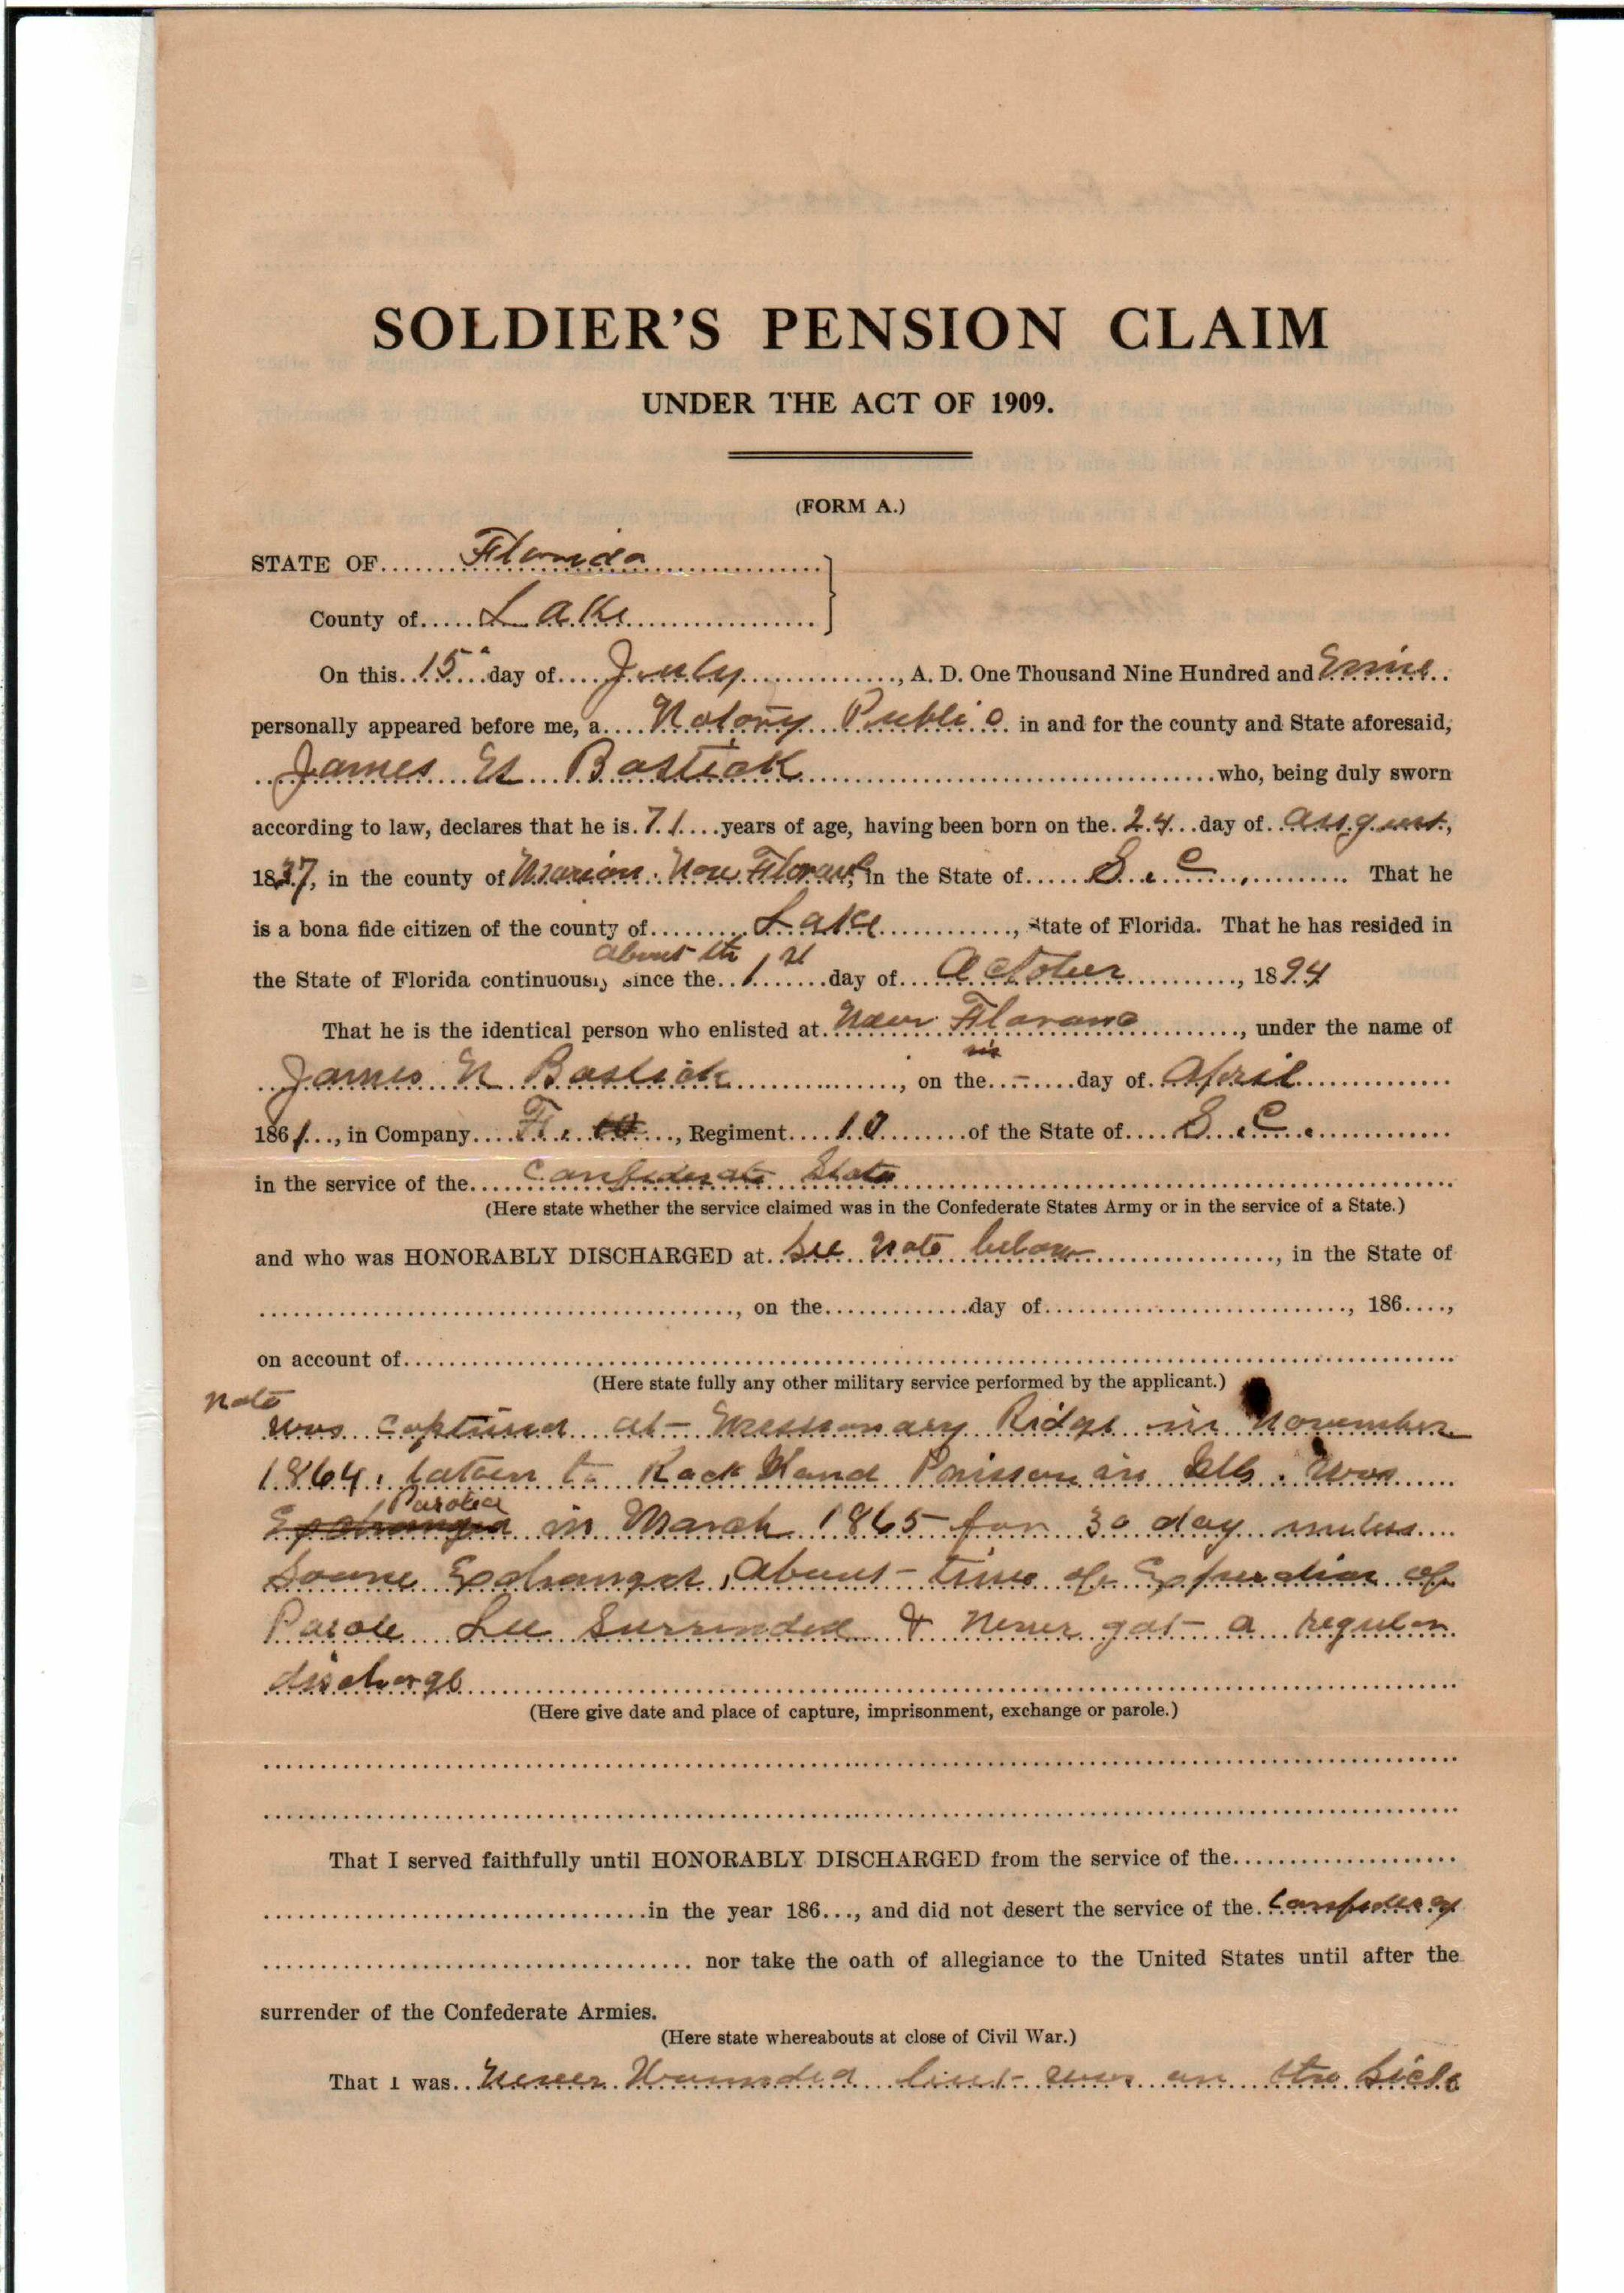 SOLDIER'S PENSION CLAIM
UNDER THE ACT OF 1909.
(FORM A.)
STATE OF Florida
County of Lake
On this 15" day of July, A. D. One Thousand Nine Hundred and
personally appeared before me, a Notary Public in and for the county and State aforesaid,
James Bostick who, being duly sworn
according to law, declares that he is 71 years of age, having been born on the 24 day of August,
1837, in the county of Marion. Now in the State of S. C. That he
is a bona fide citizen of the county of Lake, State of Florida. That he has resided in
about the
the State of Florida continuously since the 1st day of October, 1894
That he is the identical person who enlisted at Near, under the name of
in
James Bostick, on the - day of April
1861, in Company F., Regiment 10 of the State of S. C.
in the service of the Confederate State
(Here state whether the service claimed was in the Confederate States Army or in the service of a State.)
and who was HONORABLY DISCHARGED at See note below, in the State of
, on the day of, 186,
on account of
(Here state fully any other military service performed by the applicant.)
Note
was captured at Missionary Ridge in November
1864. taken to Rock Iland Prisson in Ills. was
Paroled
Exchanged in March 1865 for 30 day unless
Soone Exchanged, about time of Expiration of
Parole Lee Surrended & never got a regular
discharge
(Here give date and place of capture, imprisonment, exchange or parole.)
That I served faithfully until HONORABLY DISCHARGED from the service of the
in the year 186, and did not desert the service of the Confederacy
nor take the oath of allegiance to the United States until after the
surrender of the Confederate Armies.
(Here state whereabouts at close of Civil War.)
That I was never Wounded but was on the Sick